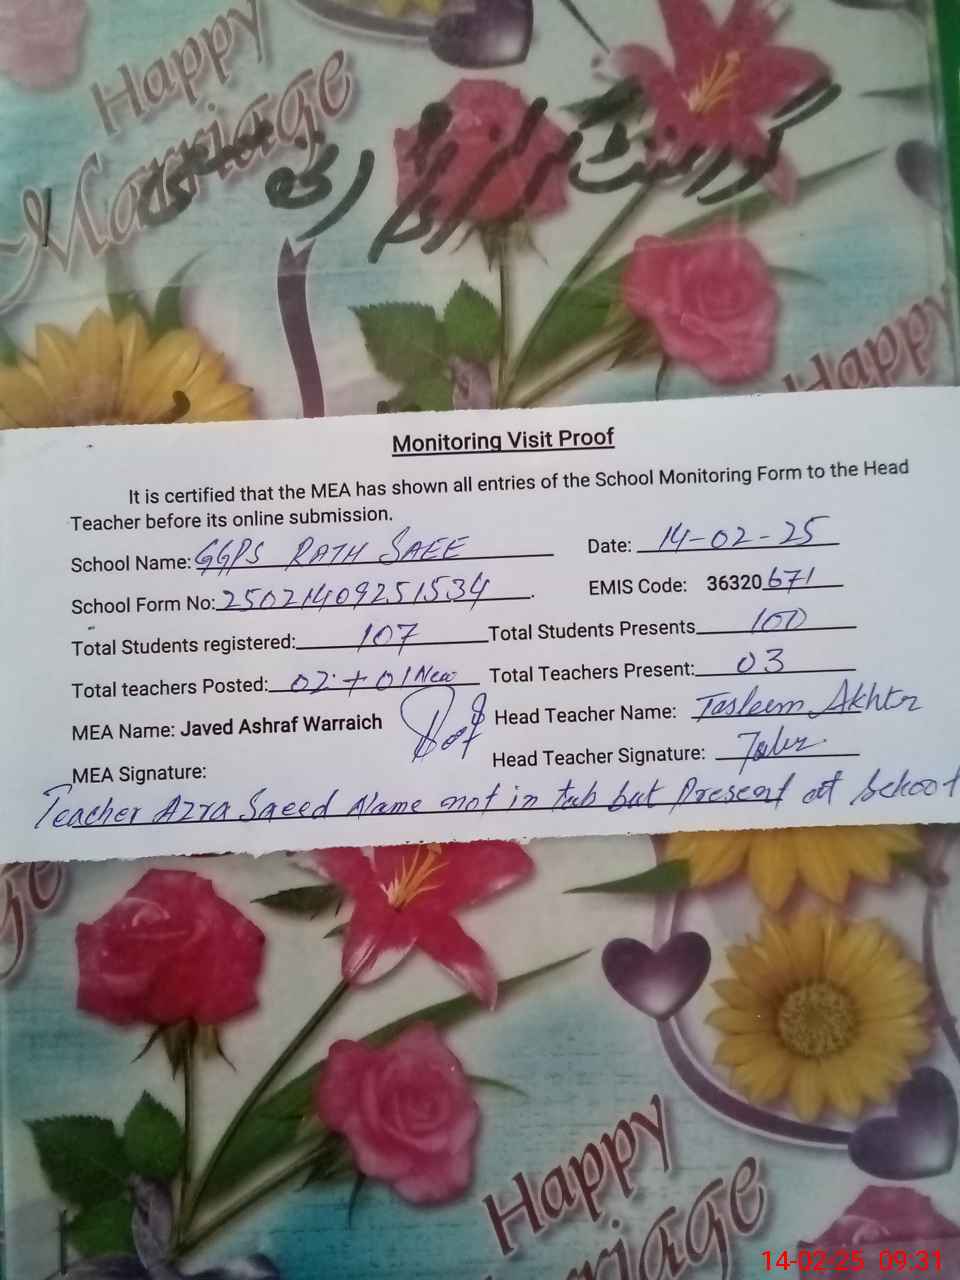 Happy
Marriage
گورنمنٹ
Happy
Monitoring Visit Proof
It is certified that the MEA has shown all entries of the School Monitoring Form to the Head
Teacher before its online submission.
School Name: GGPS RATH SAEE Date: 14-02-25
School Form No: 25021409251534. EMIS Code: 36320671
Total Students registered: 107 Total Students Presents 100
Total teachers Posted: 02 + 01 New Total Teachers Present: 03
MEA Name: Javed Ashraf Warraich Head Teacher Name: Tasleem Akhtr
MEA Signature: Head Teacher Signature:
Teacher Azra Saeed Name not in tab but Present at School
Happy
14-02-25 09:31